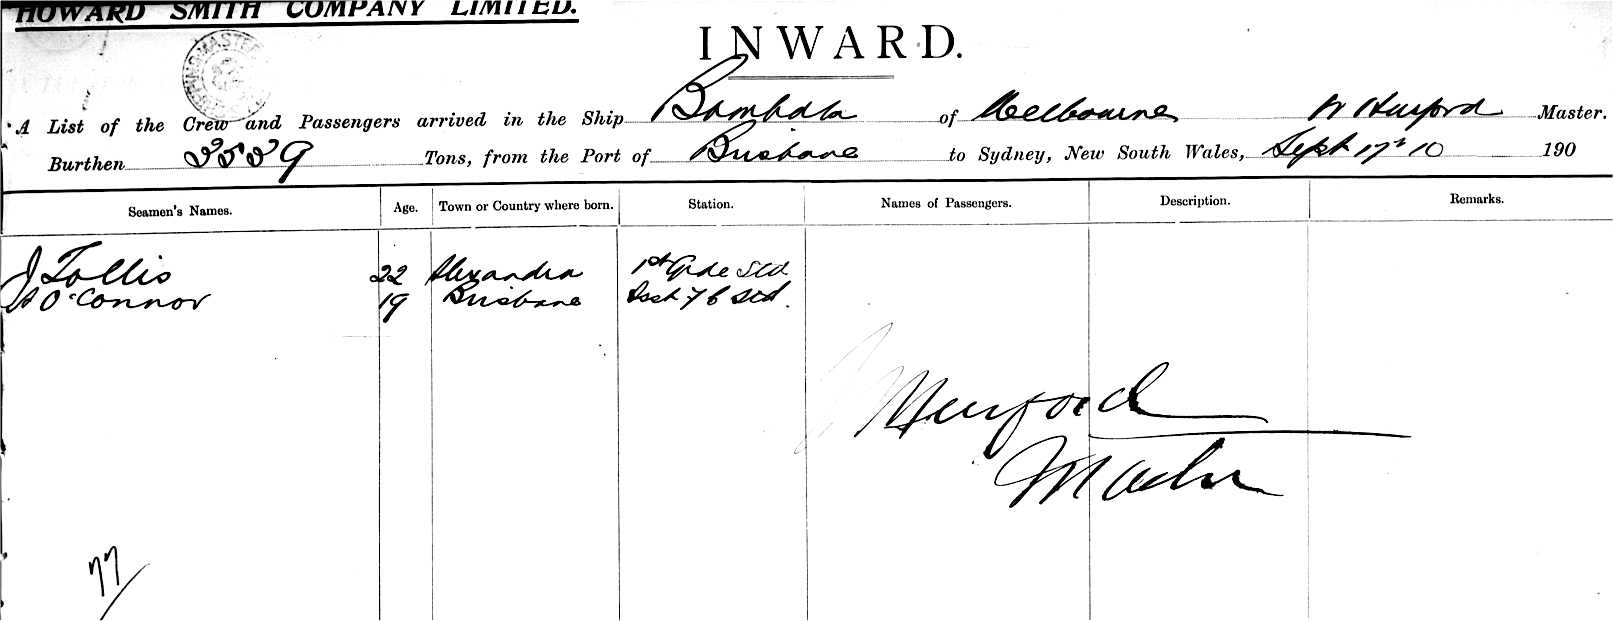 HOWARD SMITH COMPANY LIMITED.
INWARD.
A List of the Crew and Passengers arrived in the Ship Bombala of Melbourne W Hurford Master.
Burthen Tons, from the Port of Brisbane to Sydney, New South Wales, Sept 17th 10 190
Seamen's Names. Age. Town or Country where born. Station. Names of Passengers. Description. Remarks.
J Tollis 22 Alexandra 1st Grde Std
A O'Connor 19 Brisbane Std.
WHurford
Master
77